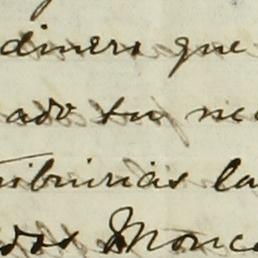 dinero que
ado tu ne
ribuirias la
dos Monc